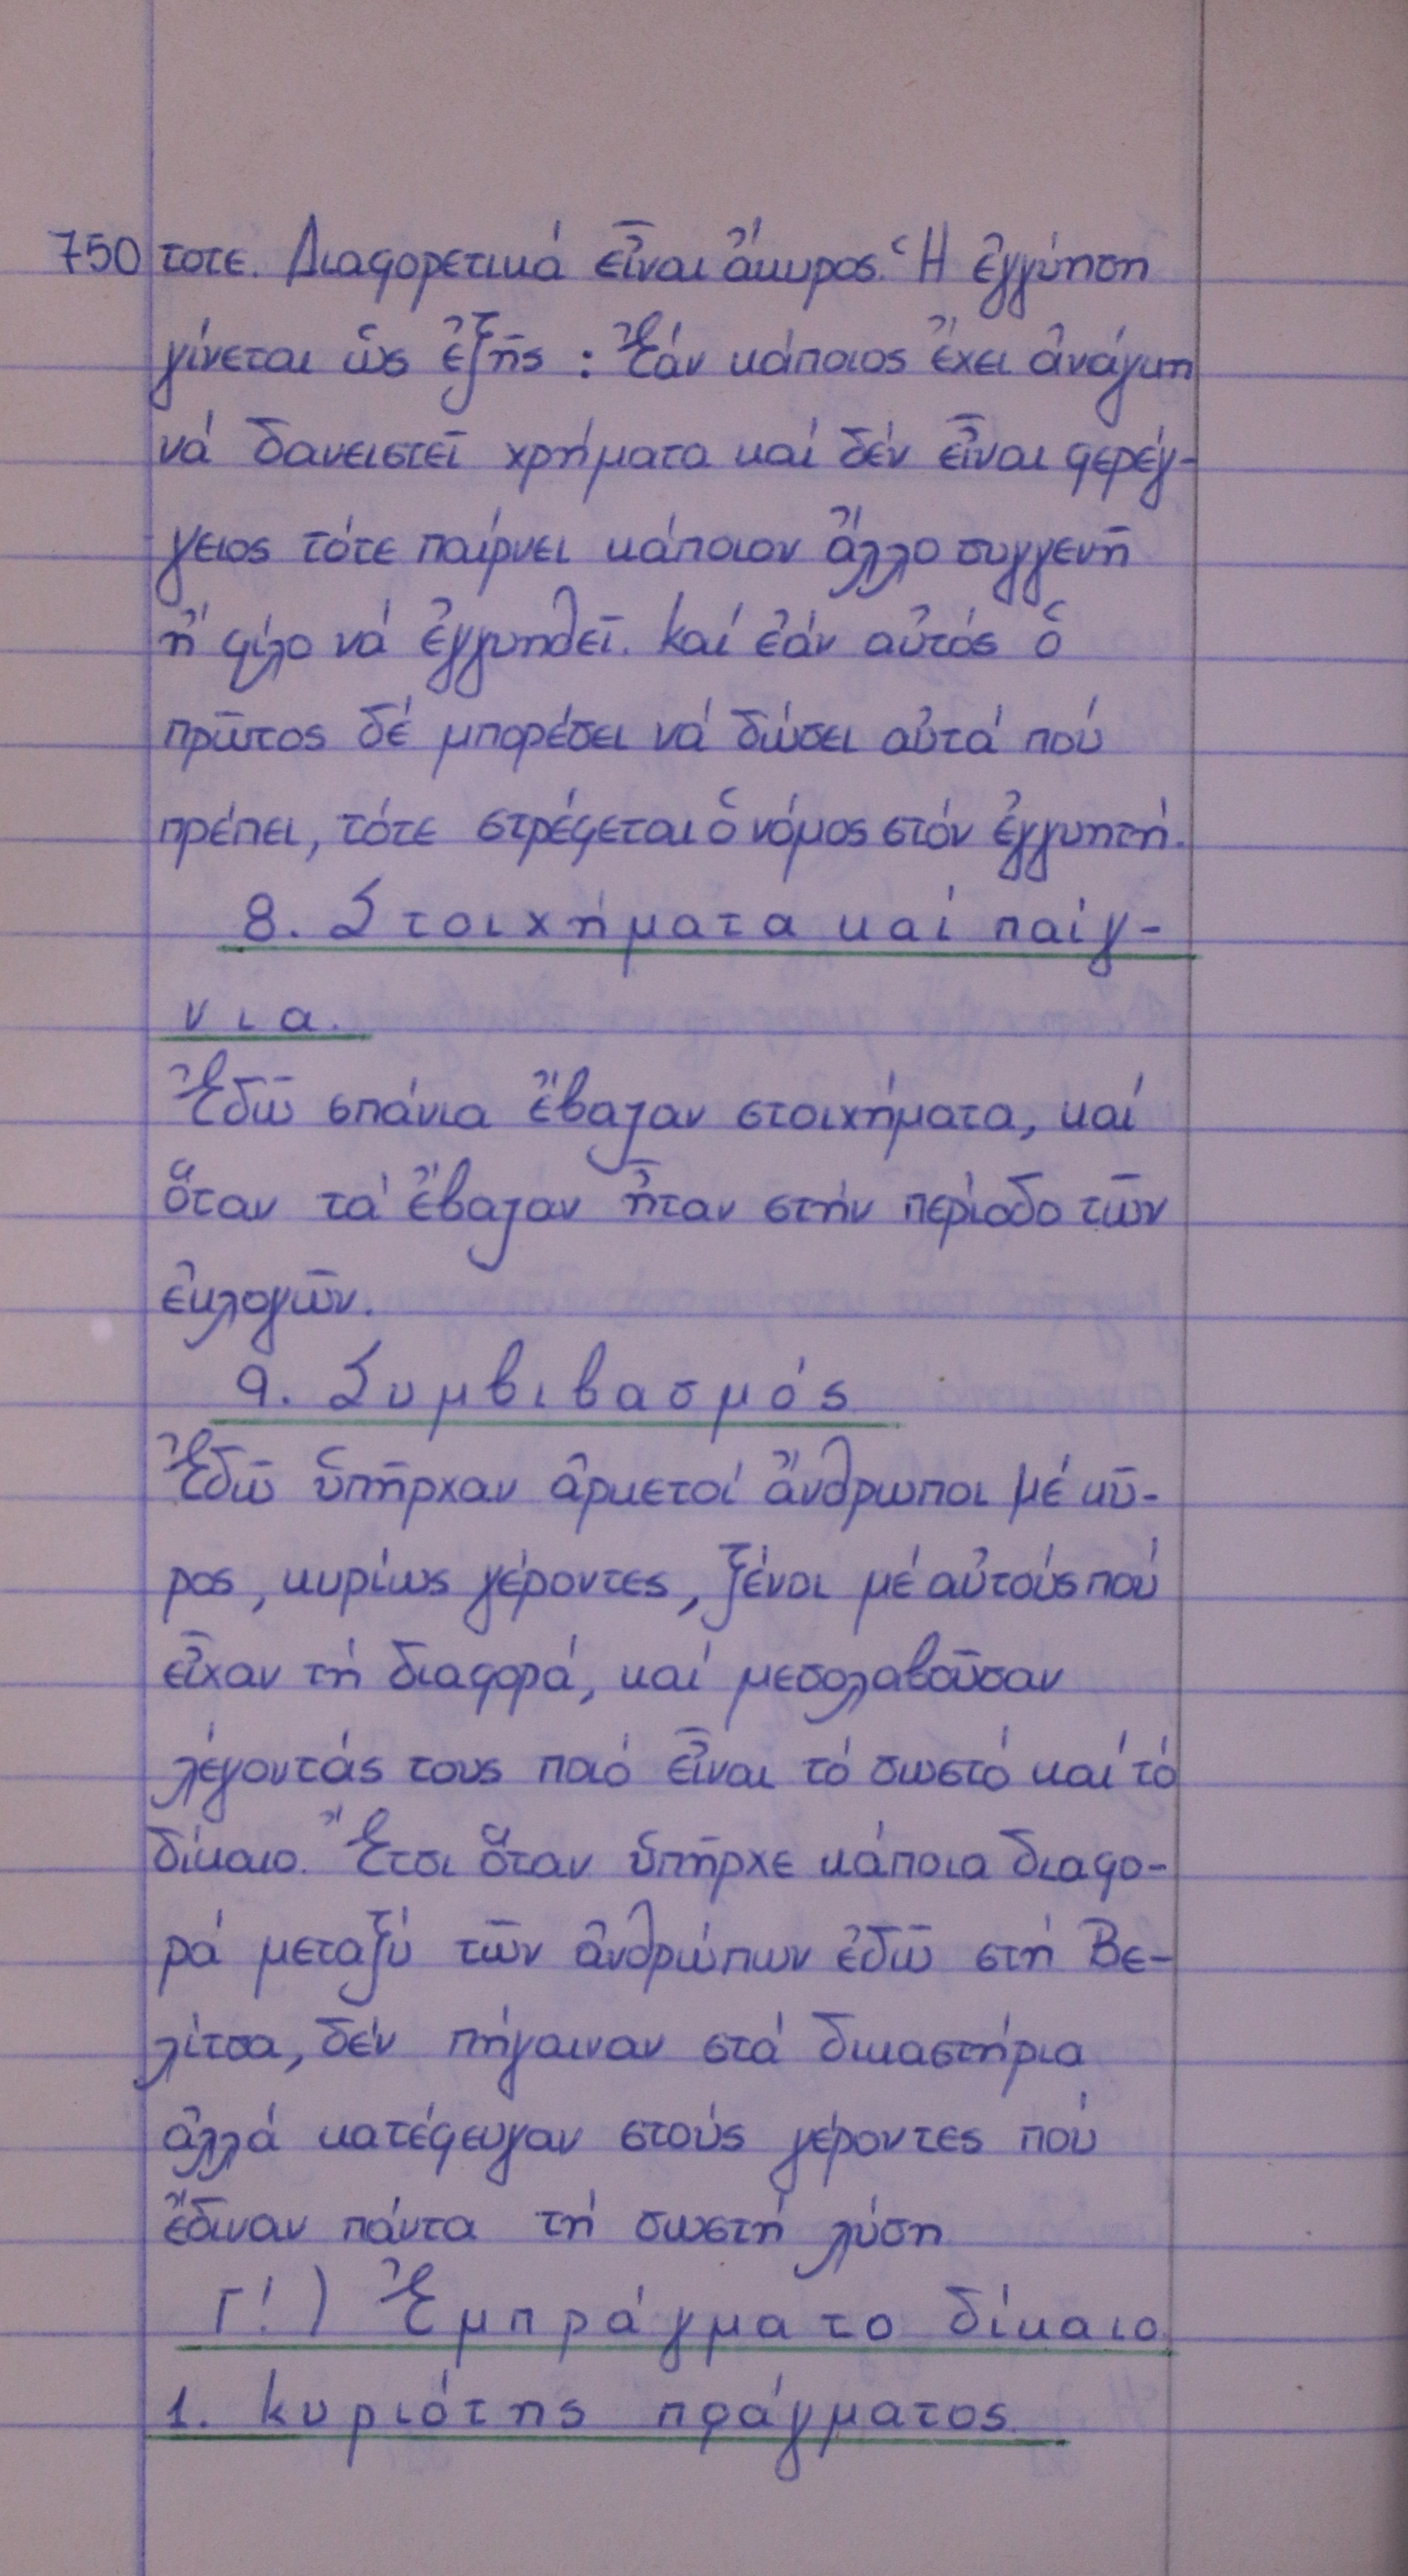 750 τοτε. Διαφορετικά εἶναι ἄκυρος. Ἡ ἐγγύηση
γίνεται ὡς ἐξῆς : Ἐάν κάποιος ἔχει ἀνάγκη
νά δανειστεῖ χρήματα καί δέν εἶναι φερέγ-
γειος τότε παίρνει κάποιον ἄλλο συγγενῆ
ἤ φίλο νά ἐγγυηθεῖ. Καί ἐάν αὐτός ὁ
πρῶτος δέ μπορέσει νά δώσει αὐτά πού
πρέπει, τότε στρέφεται ὁ νόμος στόν ἐγγυητή.
8. Στοιχήματα καί παίγ-
νια.
Ἐδῶ σπάνια ἔβαζαν στοιχήματα, καί
ὅταν τά ἔβαζαν ἦταν στήν περίοδο τῶν
ἐκλογῶν.
9. Συμβιβασμός
Ἐδῶ ὑπῆρχαν ἀρκετοί ἄνθρωποι μέ κῦ-
ρος, κυρίως γέροντες, ξένοι μέ αὐτούς πού
εἶχαν τή διαφορά, καί μεσολαβοῦσαν
λέγοντάς τους ποιό εἶναι τό σωστό καί τό
δίκαιο. Ἔτσι ὅταν ὑπῆρχε κάποια διαφο-
ρά μεταξύ τῶν ἀνθρώπων ἐδῶ στή Βε-
λίτσα, δέν πήγαιναν στά δικαστήρια
ἀλλά κατέφευγαν στούς γέροντες πού
ἔδιναν πάντα τή σωστή λύση
Γ'.) Ἐμπράγματο δίκαιο.
1. Κυριότης πράγματος.